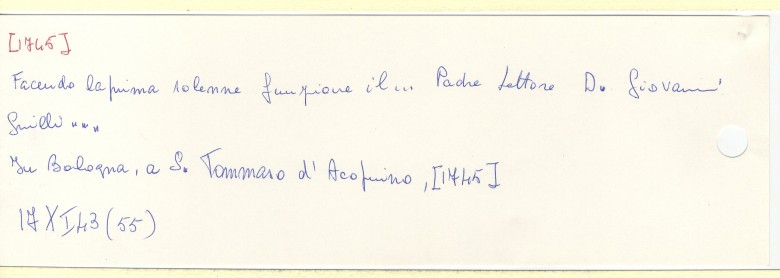 [1745]
Facendo la prima solenne funzione il... Padre Lettore D. Giovanni
Grilli...
In Bologna, a S. Tommaso d'Acquino, [1745]
17 XI 43 (55)